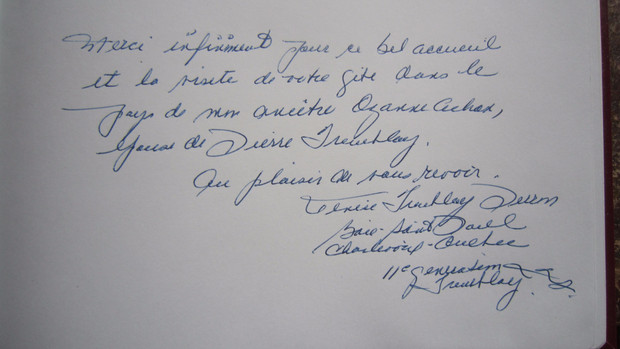 Merci infiniment pour ce bel accueil
et la visite de votre gîte dans le
pays de mon ancêtre Ozanne Achon,
épouse de Pierre Tremblay.
Au plaisir de vous revoir.
Tremblay
Baie-Saint-Paul
Charlevoix-Québec
11e génération
Tremblay.